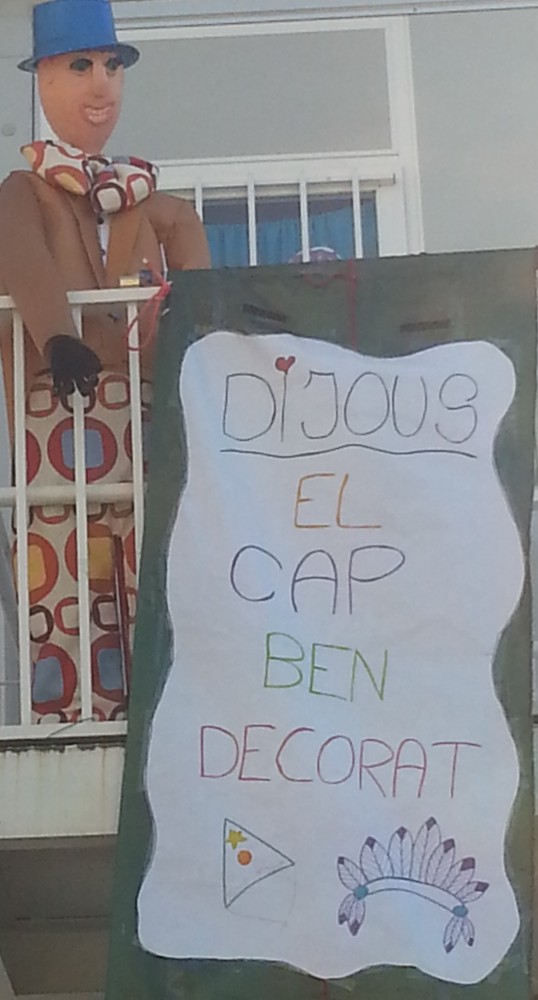 DiJOUS
EL
CAP
BEN
DECORAT